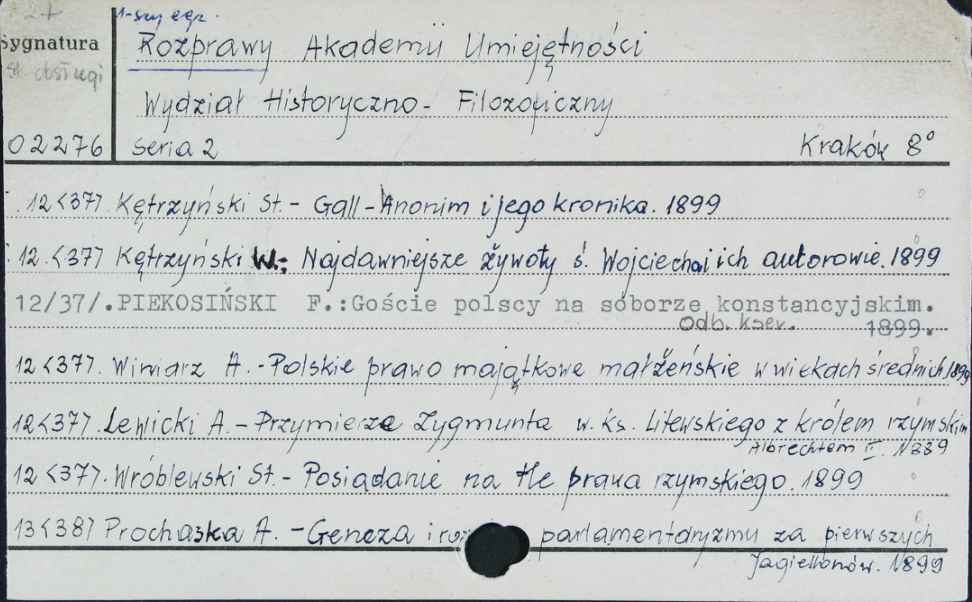 1-szy egz.
Sygnatura Rozprawy Akademii Umiejętności
Wydział Historyczno - Filozoficzny
02276 Seria 2 Kraków 8°
12<37> Kętrzyński St. - Gall-Anonim i jego kronika. 1899
12.<37> Kętrzyński W.: Najdawniejsze żywoty ś. Wojciecha i ich autorowie. 1899
12/37/.PIEKOSIŃSKI F.:Goście polscy na soborze konstancyjskim.
Odb. kser. 1899.
12<37>. Winiarz A. - Polskie prawo majątkowe małżeńskie w wiekach średnich 1899
12<37>. Lewicki A. - Przymierze Zygmunta w. ks. Litewskiego z królem rzymskim
Albrechtem II. 1899
12<37>. Wróblewski St. - Posiadanie na tle prawa rzymskiego. 1899
13<38> Prochaska A. - Geneza i parlamentaryzmu za pierwszych
Jagiellonów. 1899